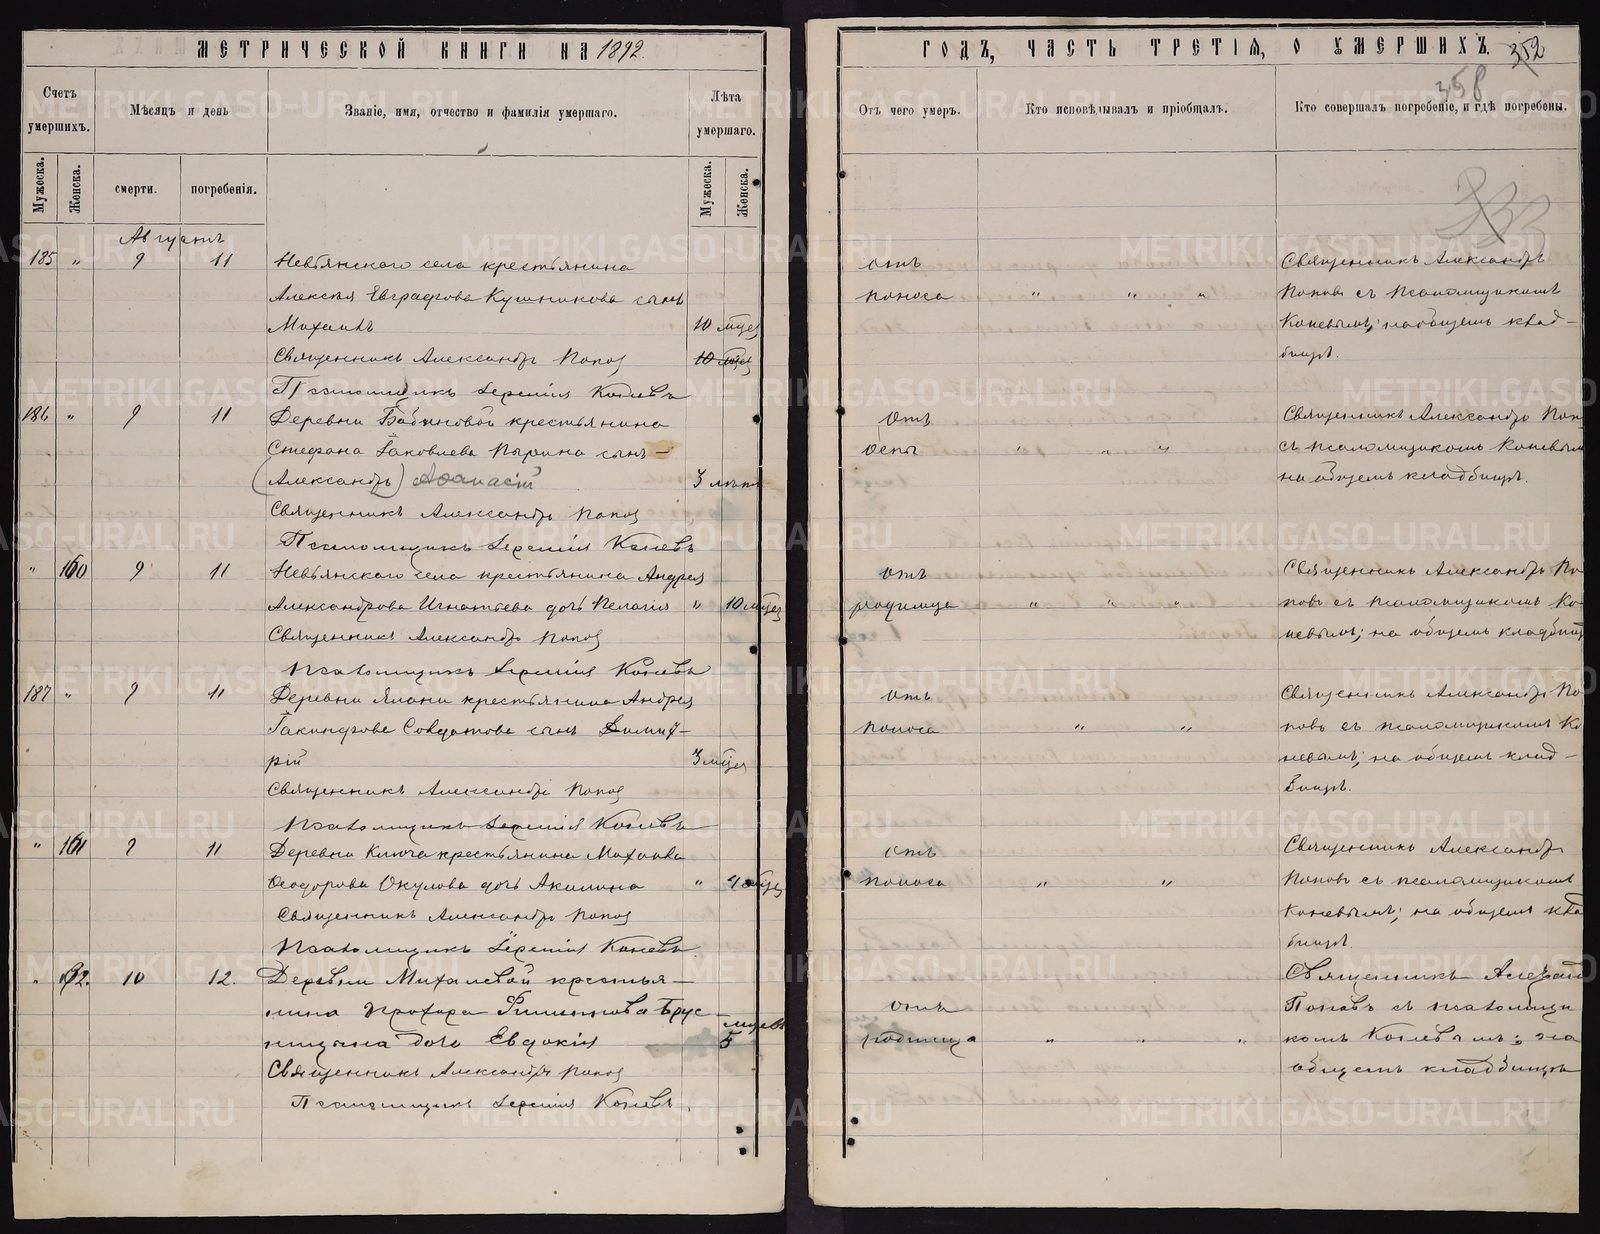 МЕТРИЧЕСКОЙ КНИГИ НА 1892.
Счетъ умершихъ.
Мѣсяцъ и день
Званіе, имя, отчество и фамилія умершаго.
Лѣта умершаго.
Мужеска.
Женска.
смерти.
погребенія.
Мужеска.
Женска.
Августъ
185 " 9 11 Невьянскаго села крестьянина
Алексѣя Евграфова Кушникова сынъ
Михаилъ 10 мѣсец
Священникъ Александръ Попов 10 мѣсец
Псаломщикъ Іеремія Коневъ
186 " 9 11 Деревни Бабиновой крестьянина
Стефана Іаковлева Пырина сынъ —
(Александръ) Афанасій 3 лѣтъ
Священникъ Александръ Попов
Псаломщикъ Іеремія Коневъ
" 160 9 11 Невьянскаго села крестьянина Андрея
Александрова Игнатьева дочь Пелагія " 10 мѣсец
Священникъ Александръ Попов
Псаломщикъ Іеремія Коневъ
187 " 9 11 Деревни Ялани крестьянина Андрея
Сынъ Димит-
рій 3 мѣсец
Священникъ Александръ Попов
Псаломщикъ Іеремія Коневъ
" 161 9 11 Деревни Ключа крестьянина Михаила
Ѳеодорова Окулова дочь Акилина " 4 мѣсец
Священникъ Александръ Попов
Псаломщикъ Іеремія Коневъ
" 162. 10 12. Деревни Михалевой крестья-
нина Прохора Филиппова Брус-
ницына дочь Евдокія мѣсяцевъ 5
Священникъ Александръ Попов
Псаломщикъ Іеремія Коневъ.
ГОДЪ, ЧАСТЬ ТРЕТІЯ, О УМЕРШИХЪ. 352
358
Отъ чего умеръ.
Кто исповѣдывалъ и пріобщалъ.
Кто совершалъ погребеніе, и гдѣ погребены.
отъ Священникъ Александръ
поноса " " " Поповъ съ псаломщикомъ
Коневымъ; на общемъ клад-
бищѣ.
Отъ Священникъ Александръ Поп
оспы " " " съ псаломщикомъ Коневым
на общемъ кладбищѣ.
отъ Священникъ Александръ По
родимца " " " повъ съ псаломщикомъ Ко
невымъ; на общемъ кладбищ
отъ Священникъ Александръ По
поноса " " повъ съ псаломщикомъ Ко
невымъ; на общемъ клад-
бищѣ.
отъ Священникъ Александръ
поноса " " Поповъ съ псаломщикомъ
Коневымъ; на общемъ клад
бищѣ.
Священникъ Александ
отъ Поповъ съ псаломщи
родимца " " " комъ Коневымъ; на
общемъ кладбищѣ
METRIKI.GASO-URAL.RU